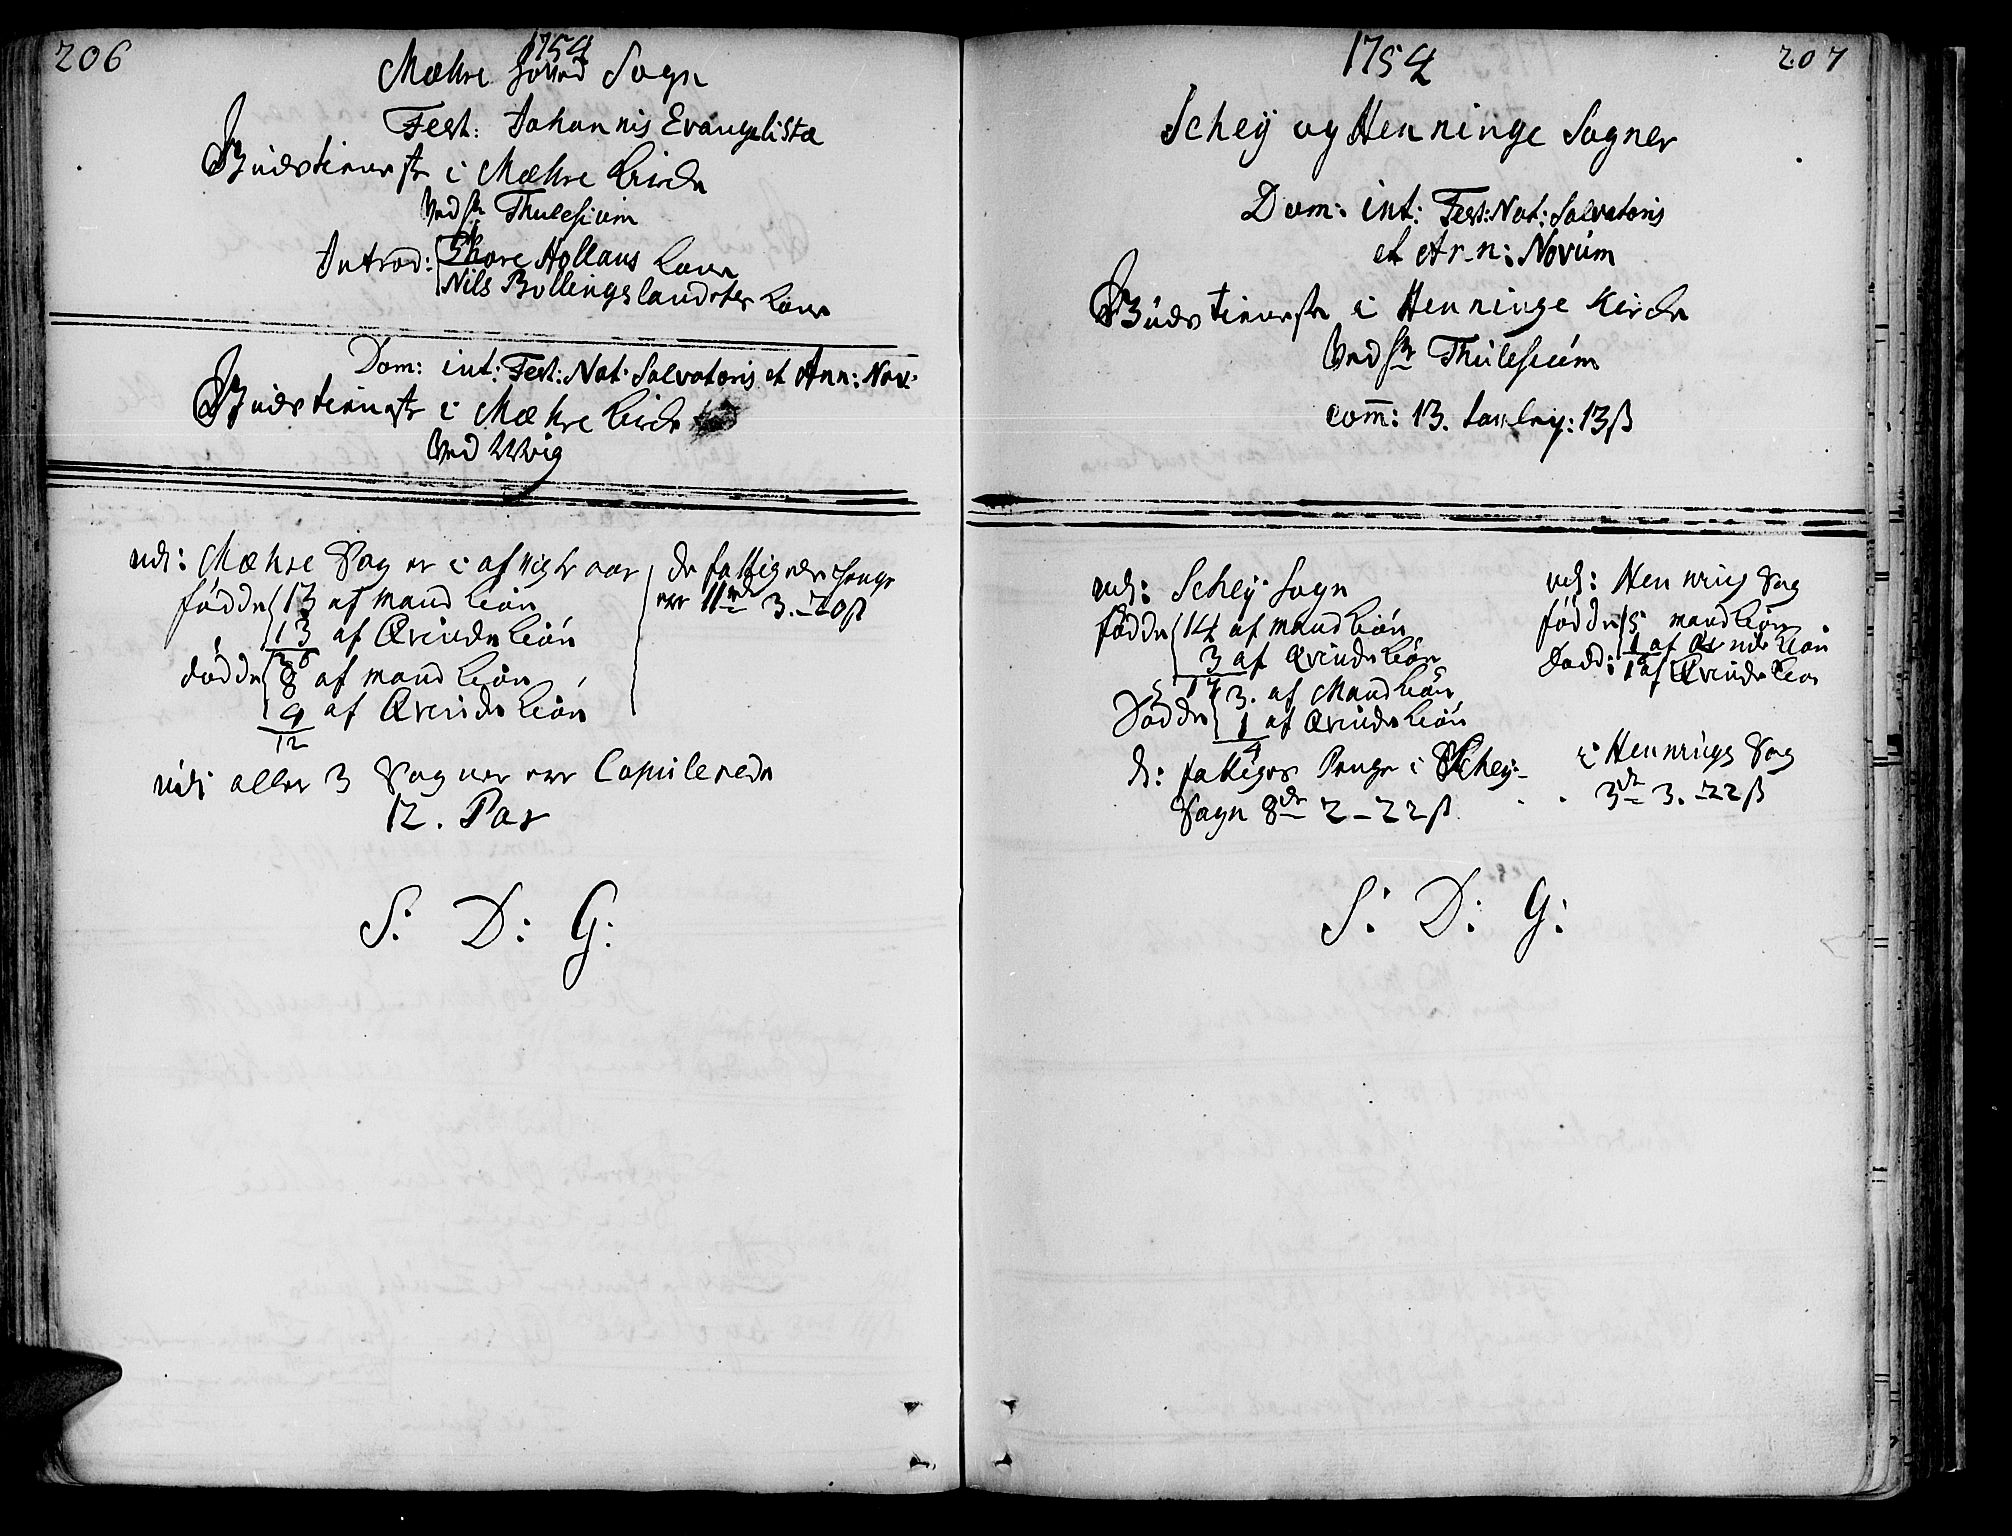 206
1754
Mæhre hoved Sogn
Fest: Johannis Evangelistæ
Gudstienest i Mæhre Kirche
Ved Hr Thulesium
Introd: Skore Hollaus Kone
Nils Bollingslandeter Kone
Dom: int: Fest: Nat: Salvatoris et Ann: Nov:
Gudstienest i Mæhre Kirche
Ved Wig
udi: Mæhre Sogn er i afvigte aar
fødde 13 af mand Kiøn
13 af Qvinde Kiøn
26
dødde 8 af mand Kiøn
4 af Qvinde Kiøn
12
de fattiges Penge
er 11 rd 3. -20 ß
udi alle 3 Sogner er Copulerede
12. Par
S: D: G:
1754
207
Schey og Henninge Sogner
Dom: int: Fest: Nat: Salvatoris
et Ann: Novum
Gudstieneste i Henninge Kirche
Ved Hr Thulesium
com: 13. 13 ß
udi: Schey Sogn
fødde 14 af mand Kiøn
3 af Qvinde Kiøn
17
Dødde 3. af Mand Kiøn
1 af Qvinde Kiøn
4
de: fattiges Penge i Schey-
Sogn 8 rd 2 - 22 ß
udi: Hennings Sogn
fødde 5 mand Kiøn
1 af Qvinde Kiøn
Dødd: 1 af Qvinde Kiøn
i Hennings Sogn
3 rd 3. -22 ß
S: D: G: